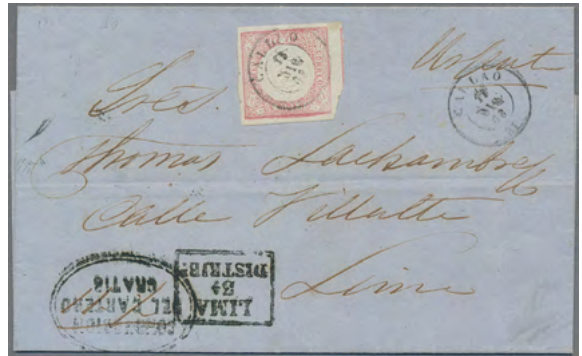 CALLAO
Urgent
CALLAO
Srés.
Thomas Lachambre
Calle Villalta
Lima
LIMA
3ª
DISTRIBN
CONDUCCION
DEL CARTERO
GRATIS